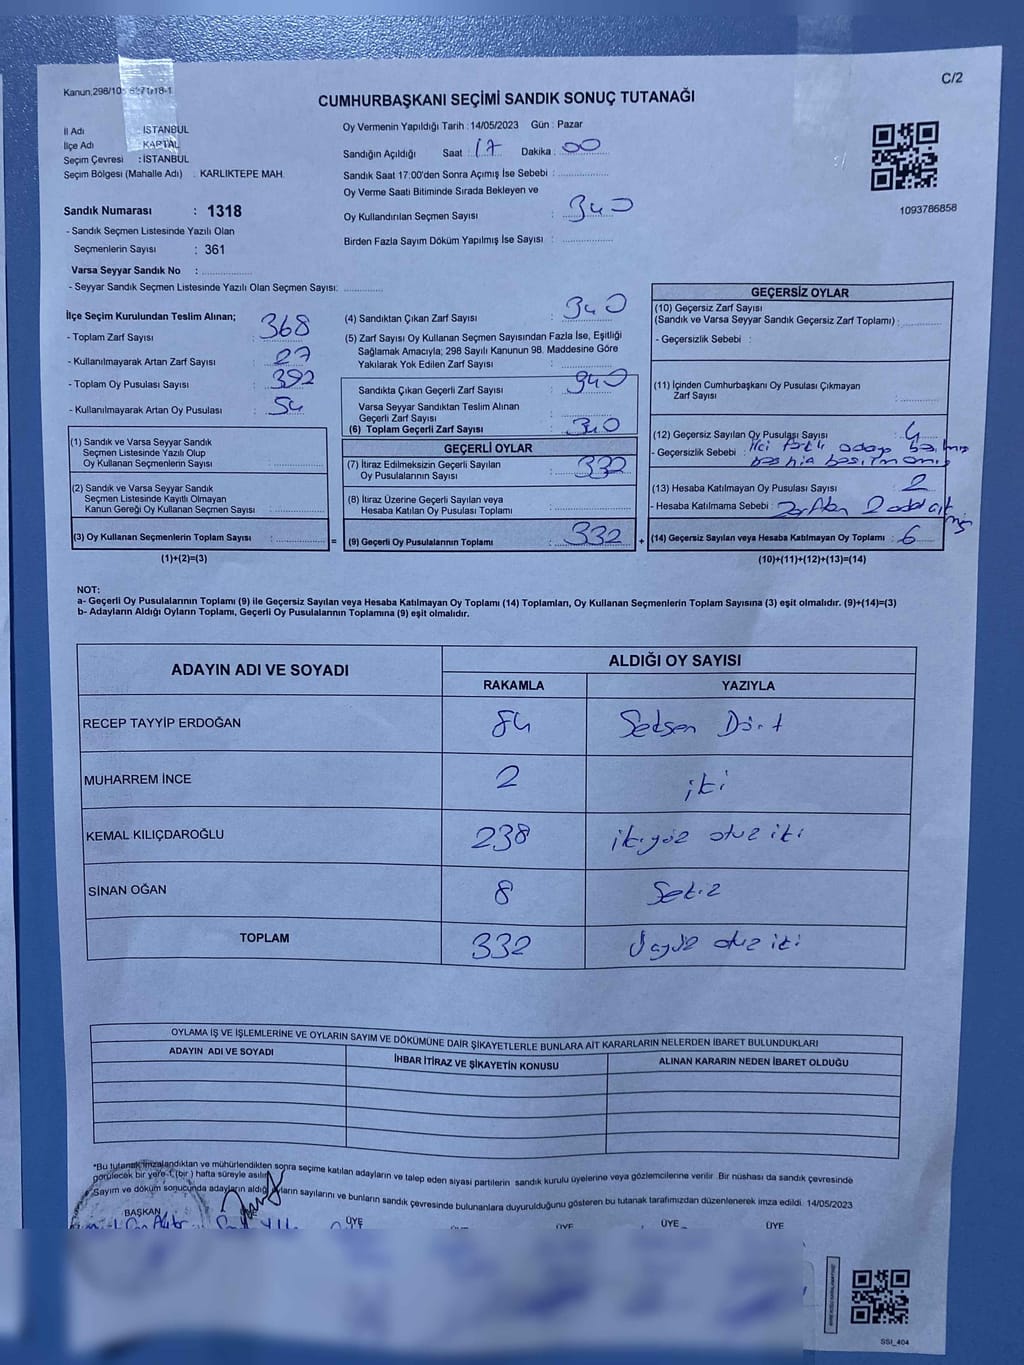 C/2
Kanun,298/105
CUMHURBAŞKANI SEÇİMİ SANDIK SONUÇ TUTANAĞI
İl Adı : İSTANBUL
İlçe Adı : KARTAL
Seçim Çevresi : İSTANBUL
Seçim Bölgesi (Mahalle Adı) : KARLIKTEPE MAH.
Sandık Numarası : 1318
- Sandık Seçmen Listesinde Yazılı Olan
Seçmenlerin Sayısı : 361
Varsa Seyyar Sandık No :
- Seyyar Sandık Seçmen Listesinde Yazılı Olan Seçmen Sayısı:
Oy Vermenin Yapıldığı Tarih : 14/05/2023 Gün : Pazar
Sandığın Açıldığı Saat : 17 Dakika : 00
Sandık Saat 17:00'den Sonra Açımış İse Sebebi :
Oy Verme Saati Bitiminde Sırada Bekleyen ve
Oy Kullandırılan Seçmen Sayısı : 340
Birden Fazla Sayım Döküm Yapılmış İse Sayısı :
1093786858
İlçe Seçim Kurulundan Teslim Alınan;
- Toplam Zarf Sayısı : 368
- Kullanılmayarak Artan Zarf Sayısı : 27
- Toplam Oy Pusulası Sayısı : 392
- Kullanılmayarak Artan Oy Pusulası : 54
(1) Sandık ve Varsa Seyyar Sandık
Seçmen Listesinde Yazılı Olup
Oy Kullanan Seçmenlerin Sayısı :
(2) Sandık ve Varsa Seyyar Sandık
Seçmen Listesinde Kayıtlı Olmayan
Kanun Gereği Oy Kullanan Seçmen Sayısı :
(3) Oy Kullanan Seçmenlerin Toplam Sayısı :
(1)+(2)=(3)
(4) Sandıktan Çıkan Zarf Sayısı : 340
(5) Zarf Sayısı Oy Kullanan Seçmen Sayısından Fazla İse, Eşitliği
Sağlamak Amacıyla; 298 Sayılı Kanunun 98. Maddesine Göre
Yakılarak Yok Edilen Zarf Sayısı :
Sandıkta Çıkan Geçerli Zarf Sayısı : 340
Varsa Seyyar Sandıktan Teslim Alınan
Geçerli Zarf Sayısı :
(6) Toplam Geçerli Zarf Sayısı : 340
GEÇERLİ OYLAR
(7) İtiraz Edilmeksizin Geçerli Sayılan
Oy Pusulalarının Sayısı : 332
(8) İtiraz Üzerine Geçerli Sayılan veya
Hesaba Katılan Oy Pusulası Toplamı :
= (9) Geçerli Oy Pusulalarının Toplamı : 332 +
GEÇERSİZ OYLAR
(10) Geçersiz Zarf Sayısı
(Sandık ve Varsa Seyyar Sandık Geçersiz Zarf Toplamı) :
- Geçersizlik Sebebi :
(11) İçinden Cumhurbaşkanı Oy Pusulası Çıkmayan
Zarf Sayısı :
(12) Geçersiz Sayılan Oy Pusulası Sayısı : 4
- Geçersizlik Sebebi :
(13) Hesaba Katılmayan Oy Pusulası Sayısı : 2
- Hesaba Katılmama Sebebi : Zarftan 2 adet
(14) Geçersiz Sayılan veya Hesaba Katılmayan Oy Toplamı : 6
(10)+(11)+(12)+(13)=(14)
NOT:
a- Geçerli Oy Pusulalarının Toplamı (9) ile Geçersiz Sayılan veya Hesaba Katılmayan Oy Toplamı (14) Toplamları, Oy Kullanan Seçmenlerin Toplam Sayısına (3) eşit olmalıdır. (9)+(14)=(3)
b- Adayların Aldığı Oyların Toplamı, Geçerli Oy Pusulalarının Toplamına (9) eşit olmalıdır.
ADAYIN ADI VE SOYADI ALDIĞI OY SAYISI
RAKAMLA YAZIYLA
RECEP TAYYİP ERDOĞAN 84 Seksen Dört
MUHARREM İNCE 2 iki
KEMAL KILIÇDAROĞLU 238 ikiyüz otuz iki
SİNAN OĞAN 8 Sekiz
TOPLAM 332 Üçyüz otuz iki
OYLAMA İŞ VE İŞLEMLERİNE VE OYLARIN SAYIM VE DÖKÜMÜNE DAİR ŞİKAYETLERLE BUNLARA AİT KARARLARIN NELERDEN İBARET BULUNDUKLARI
ADAYIN ADI VE SOYADI İHBAR İTİRAZ VE ŞİKAYETİN KONUSU ALINAN KARARIN NEDEN İBARET OLDUĞU
*Bu tutanak imzalandıktan ve mühürlendikten sonra seçime katılan adayların ve talep eden siyasi partilerin sandık kurulu üyelerine veya gözlemcilerine verilir. Bir nüshası da sandık çevresinde
görülecek bir yere 1 (bir) hafta süreyle asılır.
Sayım ve döküm sonucunda adayların aldığı oyların sayılarını ve bunların sandık çevresinde bulunanlara duyurulduğunu gösteren bu tutanak tarafımızdan düzenlenerek imza edildi. 14/05/2023
BAŞKAN ÜYE ÜYE ÜYE ÜYE
SSI_404